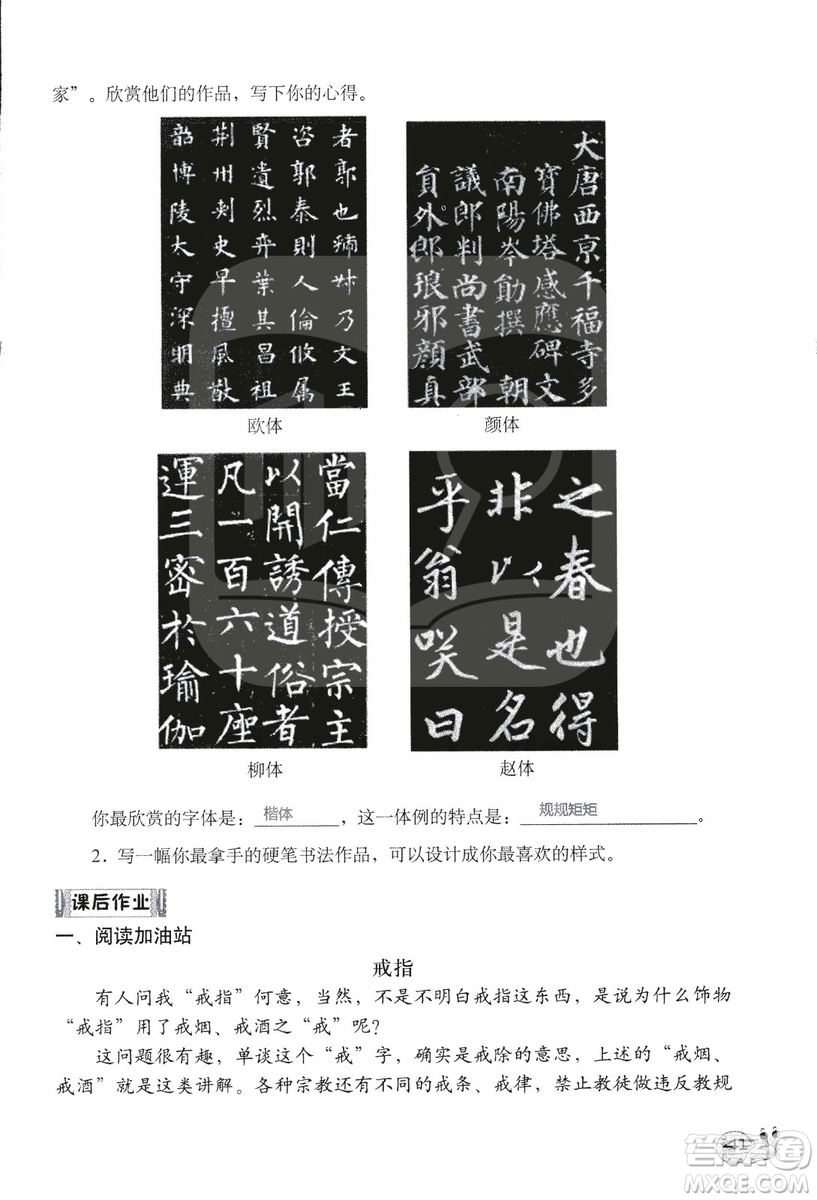 家”。欣赏他们的作品，写下你的心得。
者郭也稀叔乃文王
咨郭泰則人倫攸属
賢遺烈弈葉其昌祖
荆州刺史早擅風猷
韶博陵太守深明典
欧体
大唐西京千福寺多
寶佛塔感應碑文
南陽岑勛撰 朝
議郎判尚書武部
員外郎琅邪顔真
颜体
當仁傳授宗主
以開誘道俗者
凡一百六十座
運三密於瑜伽
柳体
之春也得
非以是名
乎翁咲曰
赵体
你最欣赏的字体是：楷体，这一体例的特点是：规规矩矩。
2．写一幅你最拿手的硬笔书法作品，可以设计成你最喜欢的样式。
课后作业
一、阅读加油站
戒指
有人问我“戒指”何意，当然，不是不明白戒指这东西，是说为什么饰物
“戒指”用了戒烟、戒酒之“戒”呢？
这问题很有趣，单谈这个“戒”字，确实是戒除的意思，上述的“戒烟、
戒酒”就是这类讲解。各种宗教还有不同的戒条、戒律，禁止教徒做违反教规
41
答案卷
MXQE.COM